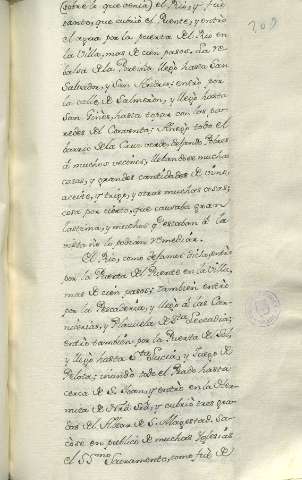 (sobre lo que tenia) el Rio, y fue
tanto, que cubrió el Puente, y entró
el agua por la puerta del Rio en
la Villa, mas de cien pasos. La re-
balsa de la Puerta, llegó hasta San
Salvador, y San Andres: entró por
la calle de Salmeron, y llegó hasta
San Ginés, hasta topar con las pa-
redes del Convento: Anegó todo el
barrio de la Cruz verde, dejando Pobres
á muchos vecinos, llebandose muchas
casas, y grandes cantidades de vino,
aceite, y trigo, y otras muchas cosas;
cosa por cierto, que causaba gran
lastima, y muchos que estaban á la
vista no lo podian remediar.
El Rio, como dejamos dicho, entró
por la Puerta del Puente en la Villa,
mas de cien pasos; tambien entró
por la Pescaderia, y llegó á las Car-
nicerias, y Plazuela de Sta. Leocadia;
entró tambien, por la Puerta del Sol,
y llegó hasta Sta. Lucia, y Juego de
Pelota; inundó todo el Prado hasta
cerca de S. Juan, y entró en la Her-
mita de Ntra. Sra., y cubrió tres gra-
das del Altar de S. Magestad. Sa-
cose en publico de muchas Yglesias
el SSmo. Sacramento, como fue de
209